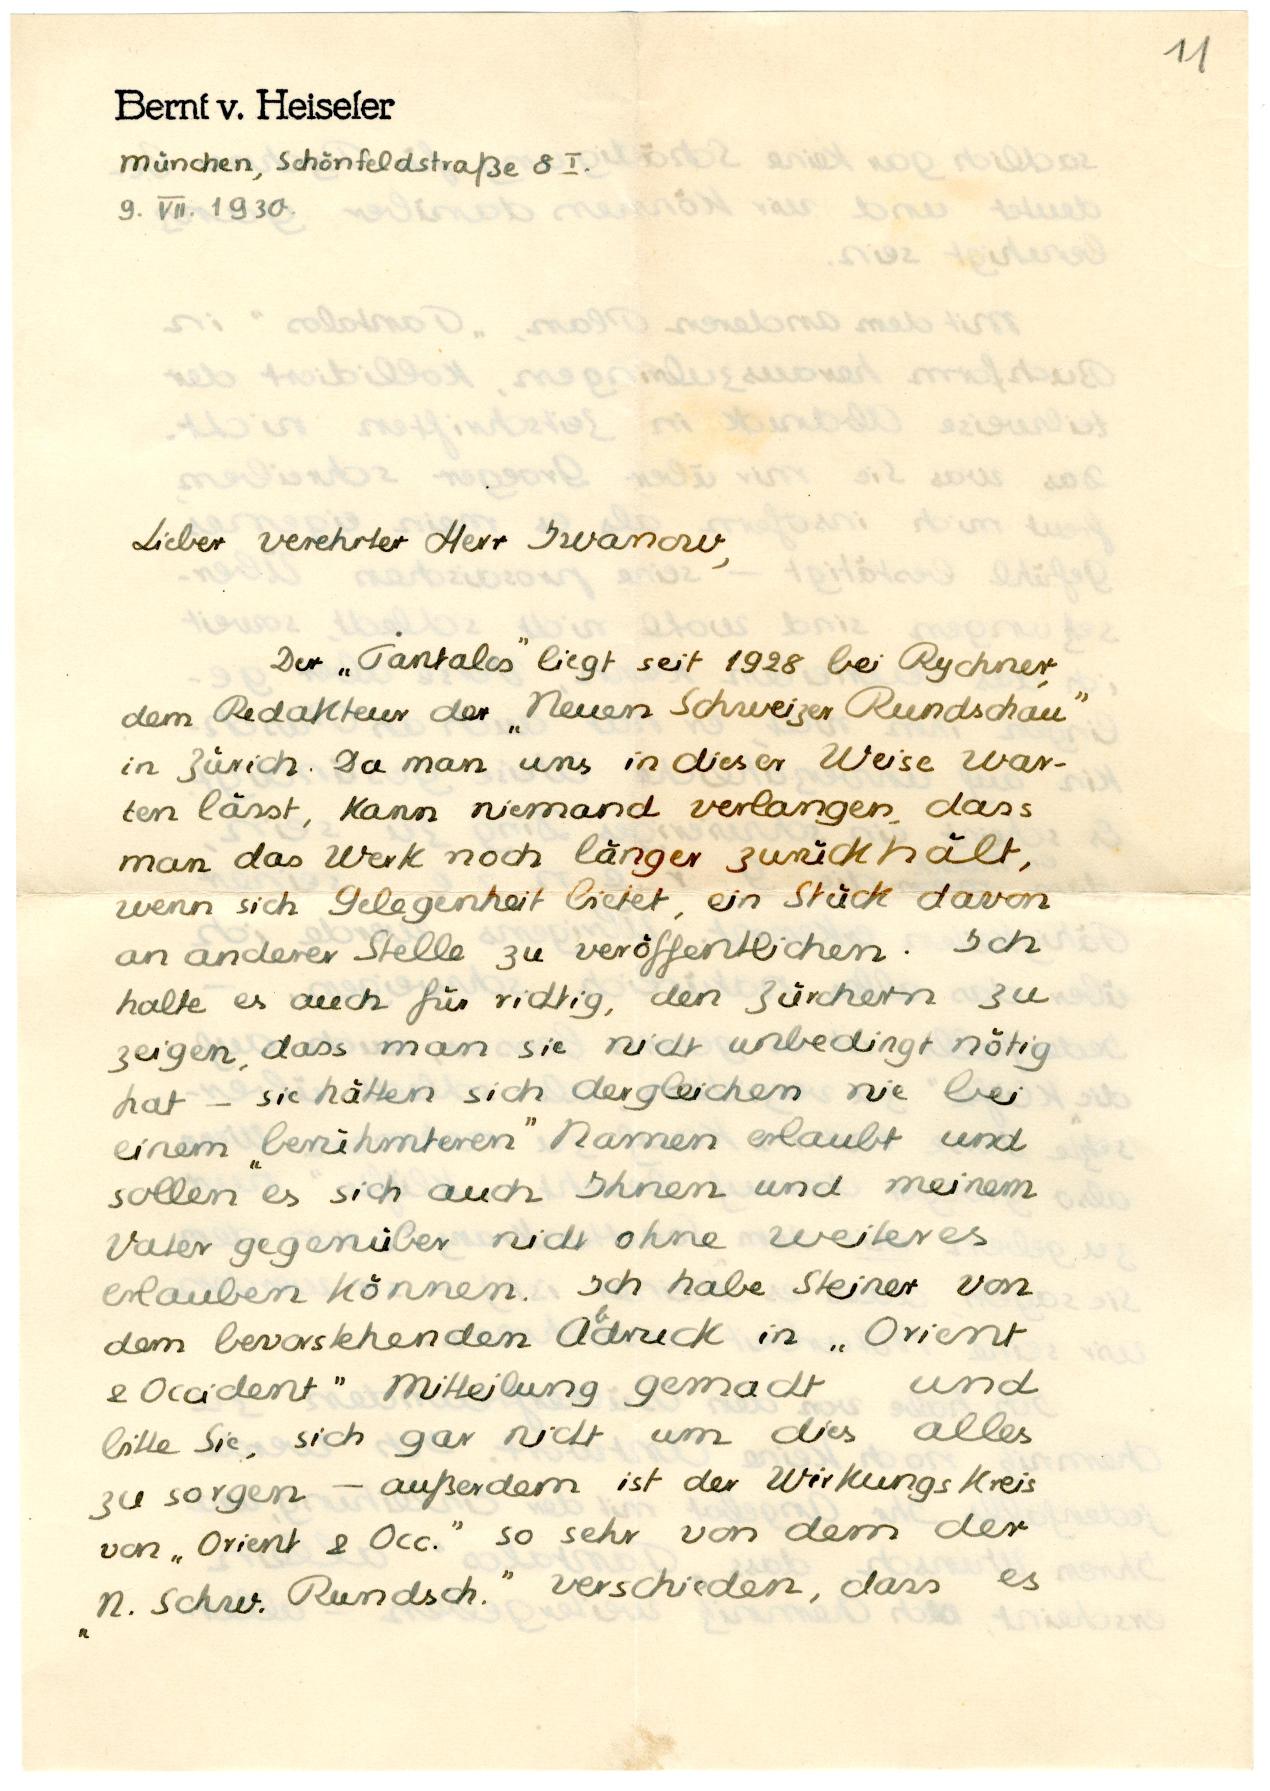 11
Bernt v. Heiseler
München, Schönfeldstraße 8 I.
9. VII. 1930.
Lieber verehrter Herr Iwanow,
Der „Tantalos" liegt seit 1928 bei Rychner,
dem Redakteur der „Neuen Schweizer Rundschau"
in Zürich. Da man uns in dieser Weise war-
ten lässt, kann niemand verlangen, dass
man das Werk noch länger zurückhält,
wenn sich Gelegenheit bietet, ein Stück davon
an anderer Stelle zu veröffentlichen. Ich
halte es auch für richtig, den Zürchern zu
zeigen, dass man sie nicht unbedingt nötig
hat – sie hätten sich dergleichen nie bei
einem „berühmteren" Namen erlaubt und
sollen es sich auch Ihnen und meinem
Vater gegenüber nicht ohne weiteres
erlauben können. Ich habe Steiner von
dem bevorstehenden Abdruck in „Orient
& Occident" Mitteilung gemacht und
bitte Sie, sich gar nicht um dies alles
zu sorgen – außerdem ist der Wirkungskreis
von „Orient & Occ." so sehr von dem der
„N. Schw. Rundsch." verschieden, dass es